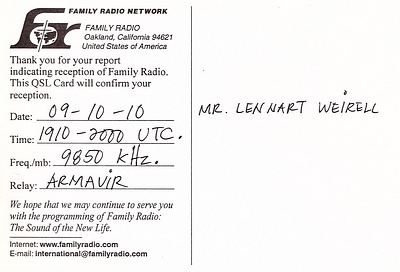 FAMILY RADIO NETWORK
fr
FAMILY RADIO
Oakland, California 94621
United States of America
Thank you for your report
indicating reception of Family Radio.
This QSL Card will confirm your
reception.
Date: 09-10-10
Time: 1910-2000 UTC.
Freq./mb: 9850 KHz.
Relay: ARMAVIR
We hope that we may continue to serve you
with the programming of Family Radio:
The Sound of the New Life.
Internet: www.familyradio.com
E-mail: international@familyradio.com
MR. LENNART WEIRELL